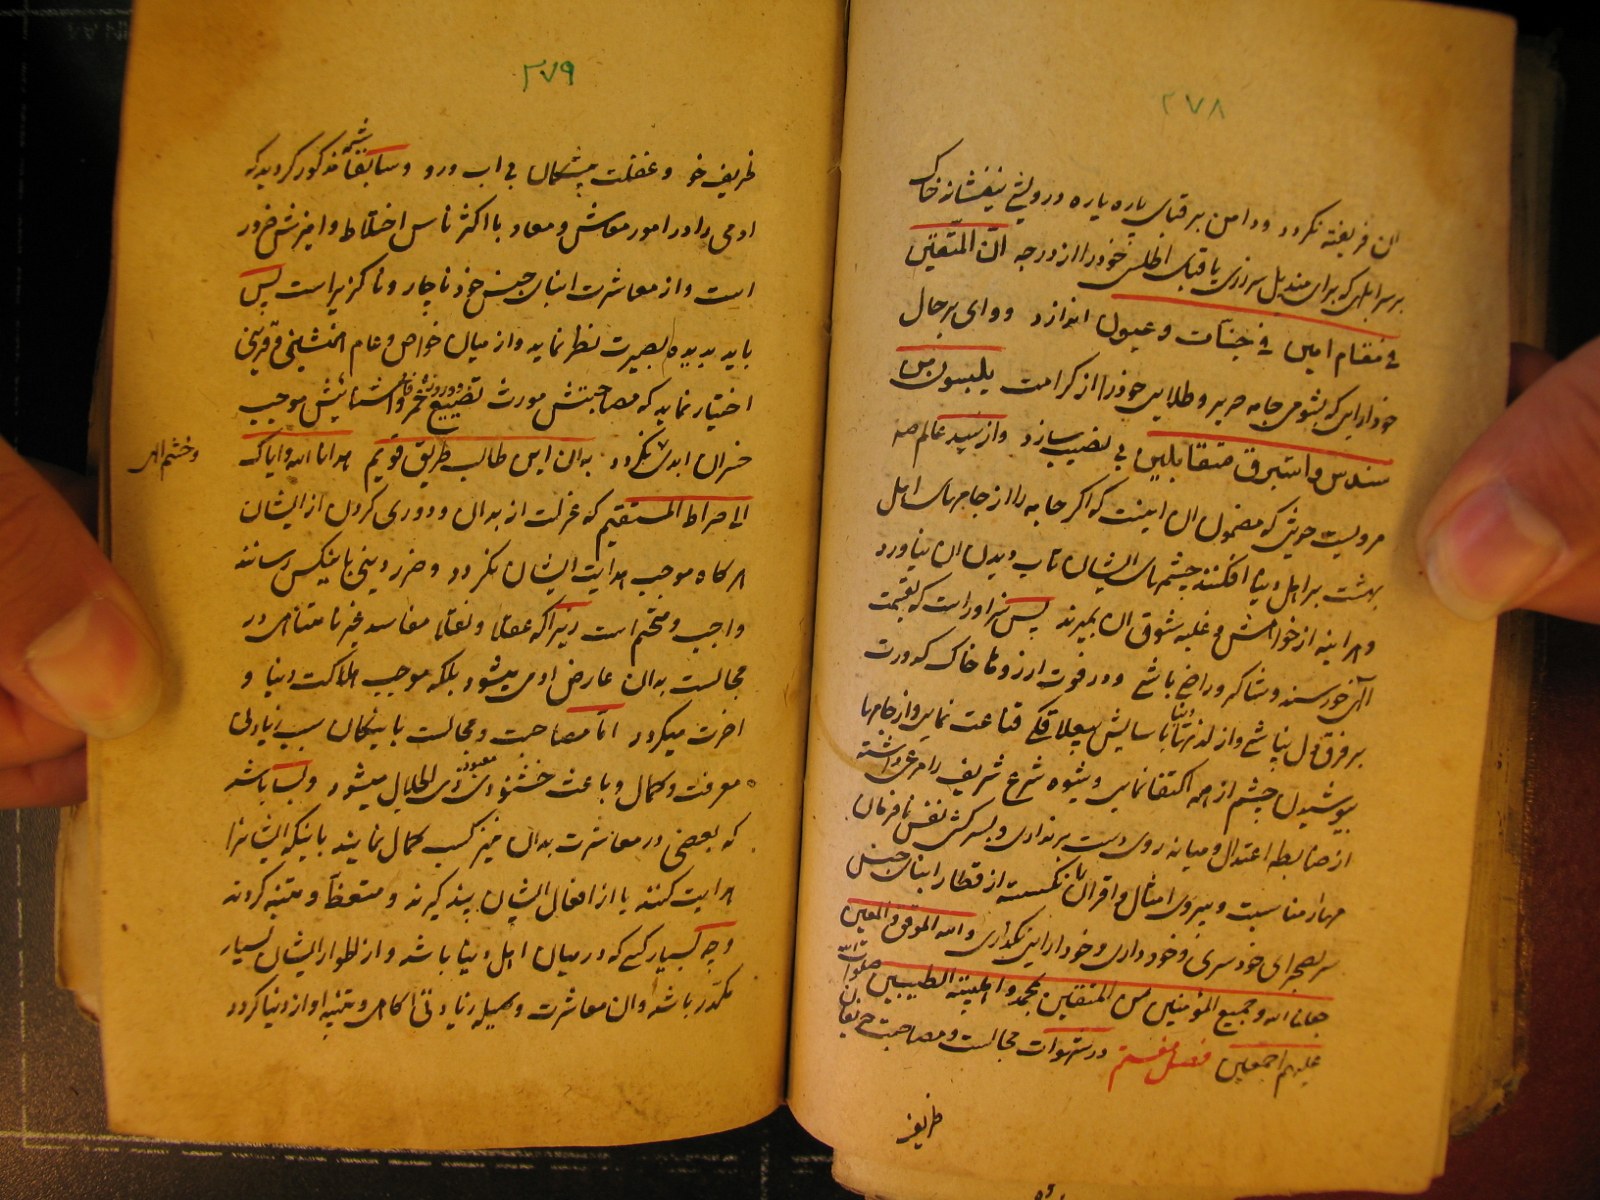 ۲۷۸
ان فریفته نکردد ودامن بر قبای پاره پاره درویشی بیفشانه خاک
بر سر ابلهی که برای مندیل سرزری یا قبای اطلسی خود را از درجه انّ المتقین
فی مقام امین فی جنات وعیون اندازد ووای بر حال
خودآرایی که بشومی جامه حریر وطلایی خود را از کرامت یلبسون من
سندس واستبرق متقابلین بی نصیب سازد واز سید عالم ص
مرویست حدیثی که مضمون ان اینست که اکر جامه را از جامهای اهل
بهشت بر اهل دنیا افکنند چشمهای ایشان تاب دیدن ان نیاورد
وهر اینه از خواهش وغلبه شوق ان بمیرند پس سزاوار است که بقسمت
الهی خورسند وشاکر وراضی باشی ودر فوت ارزوها خاک کدورت
بر فرق دل نپاشی واز لذتهای دنیا باسایش پهلا قلی قناعت نمایی واز جامها
بپوشیدن چشم از همه اکتفا نمایی وشیوه شرع شریف را مرعی داشته
از ضابطه اعتدال ومیانه روی دست برنداری وبسرکشی نفس نافرمان
مهار مناسبت وپیروی امثال واقران را نکسسته از قطار ابنای جنس
سر بصحرای خودسری وخودداری وخودآرایی نکذاری والله الموفق والمعین
جعلنا الله وجمیع المؤمنین من المتقین بمحمد واهلبیته الطیبین صلوات الله
علیهم اجمعین فصل هفتم در شهوات مجالست ومصاحبت حریفان
ظریف
۲۷۹
ظریف خو وغفلت پیشکان بی اب ورو وسابقا شمه مذکور کردید که
ادمی را در امور معاش ومعاد با اکثر ناس اختلاط وامیزش ضرور
است واز معاشرت ابنای جنس خود ناچار وناکزیر است پس
باید بدیده بصیرت نظر نماید واز میان خواص وعام همنشینی وقرینی
اختیار نماید که مصاحبتش مورث تضییع عمر دو روزه فانی واشنائیش موجب
خسران ابدی نکردد بدان ای طالب طریق قویم هدانا الله وایاک
وخشم الهی
الی صراط المستقیم که عزلت از بدان ودوری کردن از ایشان
هر کاه موجب هدایت ایشان نکردد وضرر دینی باینکس رسانند
واجب ومتحتم است زیرا که عقلا ونقلا مفاسد غیر متناهی در
مجالست بدان عارض ادمی میشود بلکه موجب هلاکت دنیا و
اخرت میکردد امّا مصاحبت ومجالست با نیکان سبب زیادتی
معرفت وکمال وباعث خشنودی معبود ذی الجلال میشود وبسا باشد
که بعضی در معاشرت بدان نیز کسب کمال نمایند باینکه ایشانرا
هدایت کنند یا از افعال ایشان پند کیرند ومتعظ ومتنبه کردند
وچه بسیار کسی که در میان اهل دنیا باشد واز اطوار ایشان بسیار
مکدّر باشد وان معاشرت وسیله زیادتی اکاهی وتنبه او از دنیا کردد